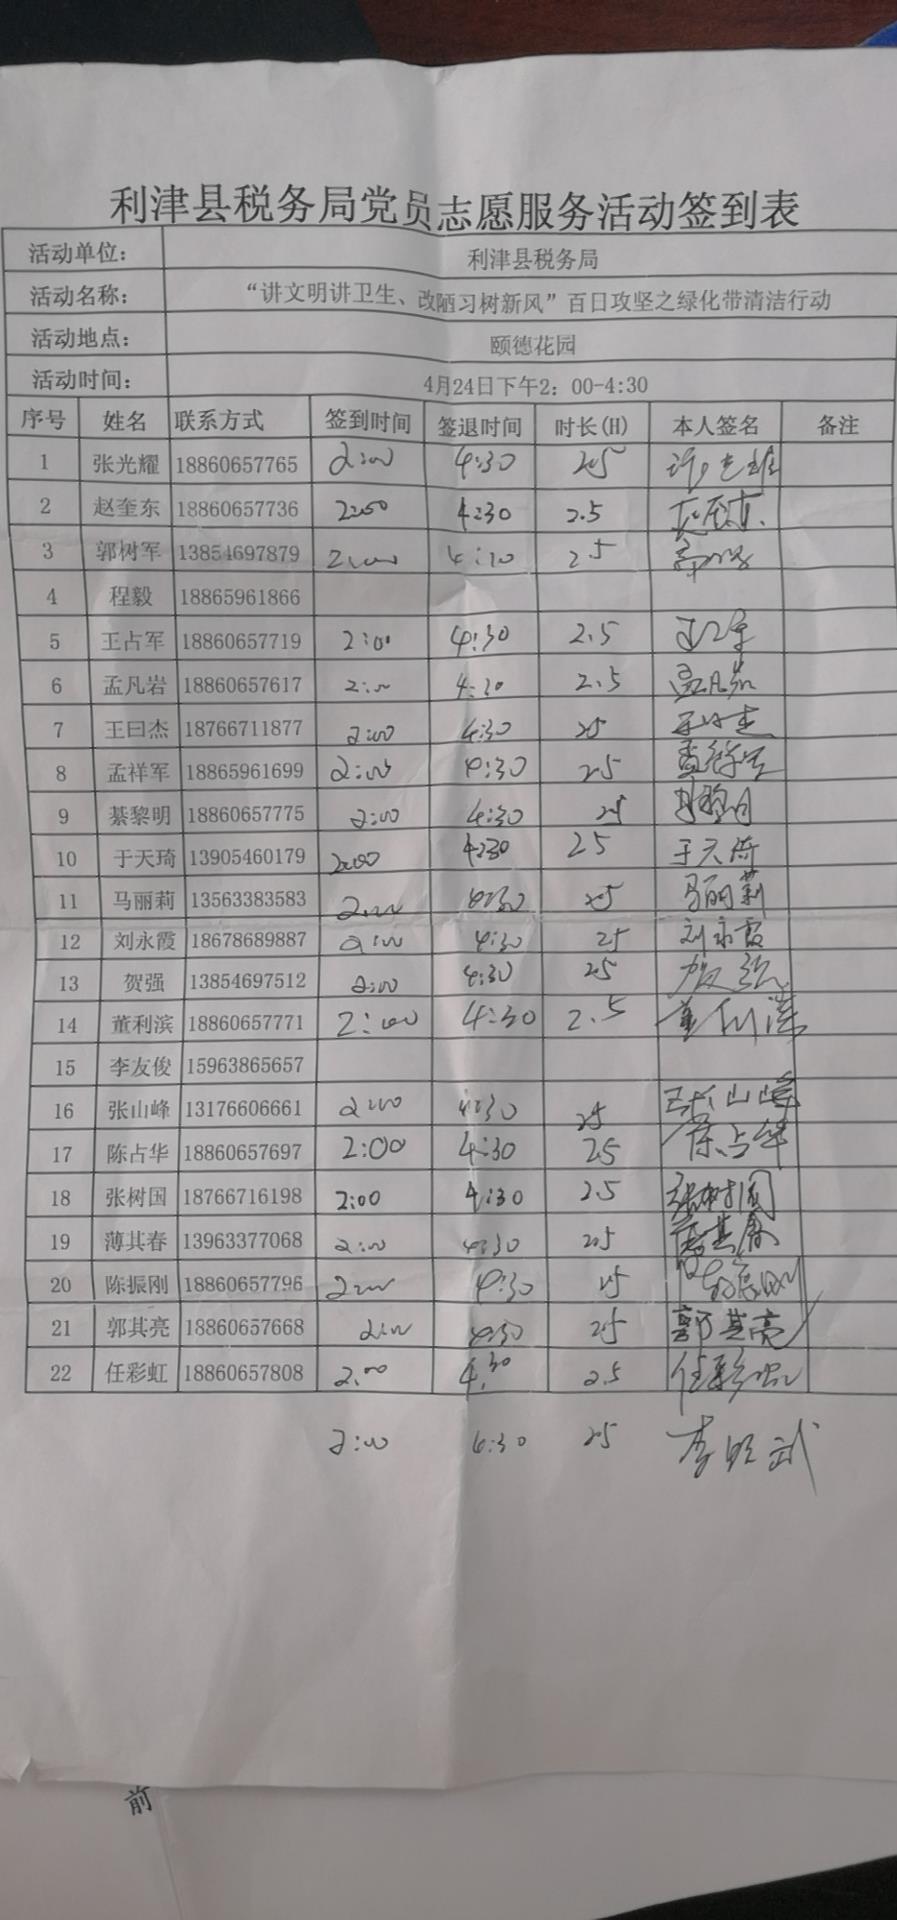 利津县税务局党员志愿服务活动签到表
活动单位： 利津县税务局
活动名称： “讲文明讲卫生、改陋习树新风”百日攻坚之绿化带清洁行动
活动地点： 颐德花园
活动时间： 4月24日下午2：00-4:30
序号 姓名 联系方式 签到时间 签退时间 时长(H) 本人签名 备注
1 张光耀 18860657765 2:00 4:30 2.5
2 赵奎东 18860657736 2:00 4:30 2.5
3 郭树军 13854697879 2:00 4:30 2.5
4 程毅 18865961866
5 王占军 18860657719 2:00 4:30 2.5 王占军
6 孟凡岩 18860657617 2:00 4:30 2.5 孟凡岩
7 王曰杰 18766711877 2:00 4:30 2.5 王曰杰
8 孟祥军 18865961699 2:00 4:30 2.5 孟祥军
9 綦黎明 18860657775 2:00 4:30 2.5 綦黎明
10 于天琦 13905460179 2:00 4:30 2.5 于天琦
11 马丽莉 13563383583 2:00 4:30 2.5 马丽莉
12 刘永霞 18678689887 2:00 4:30 2.5 刘永霞
13 贺强 13854697512 2:00 4:30 2.5 贺强
14 董利滨 18860657771 2:00 4:30 2.5 董利滨
15 李友俊 15963865657
16 张山峰 13176606661 2:00 4:30 2.5 张山峰
17 陈占华 18860657697 2:00 4:30 2.5 陈占华
18 张树国 18766716198 2:00 4:30 2.5 张树国
19 薄其春 13963377068 2:00 4:30 2.5 薄其春
20 陈振刚 18860657796 2:00 4:30 2.5 陈振刚
21 郭其亮 18860657668 2:00 4:30 2.5 郭其亮
22 任彩虹 18860657808 2:00 4:30 2.5 任彩虹
2:00 4:30 2.5
前